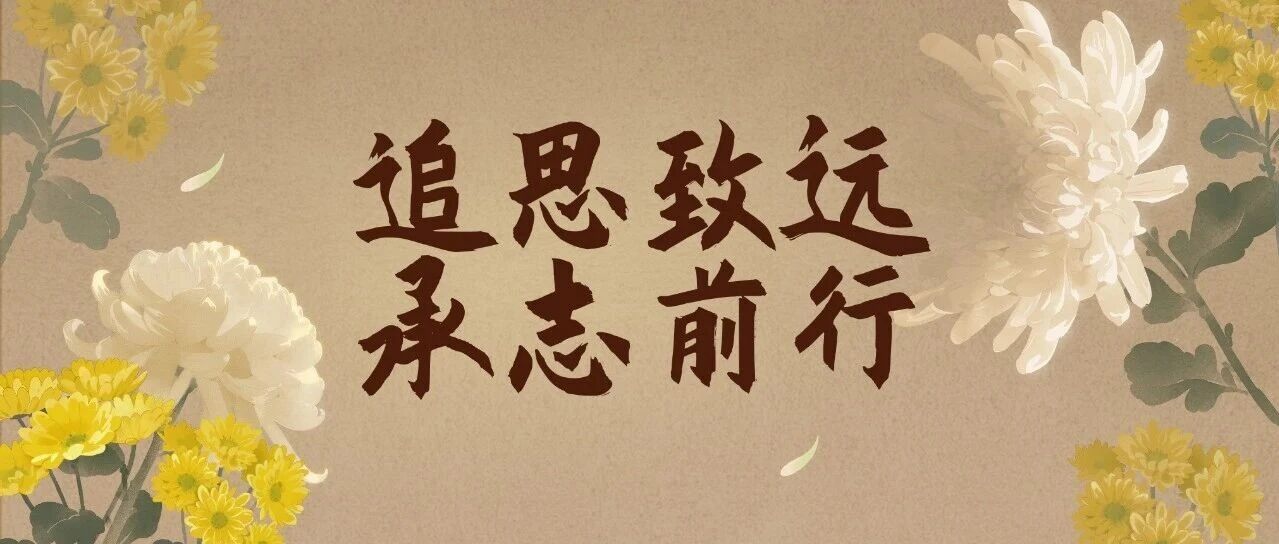 追思致远
承志前行